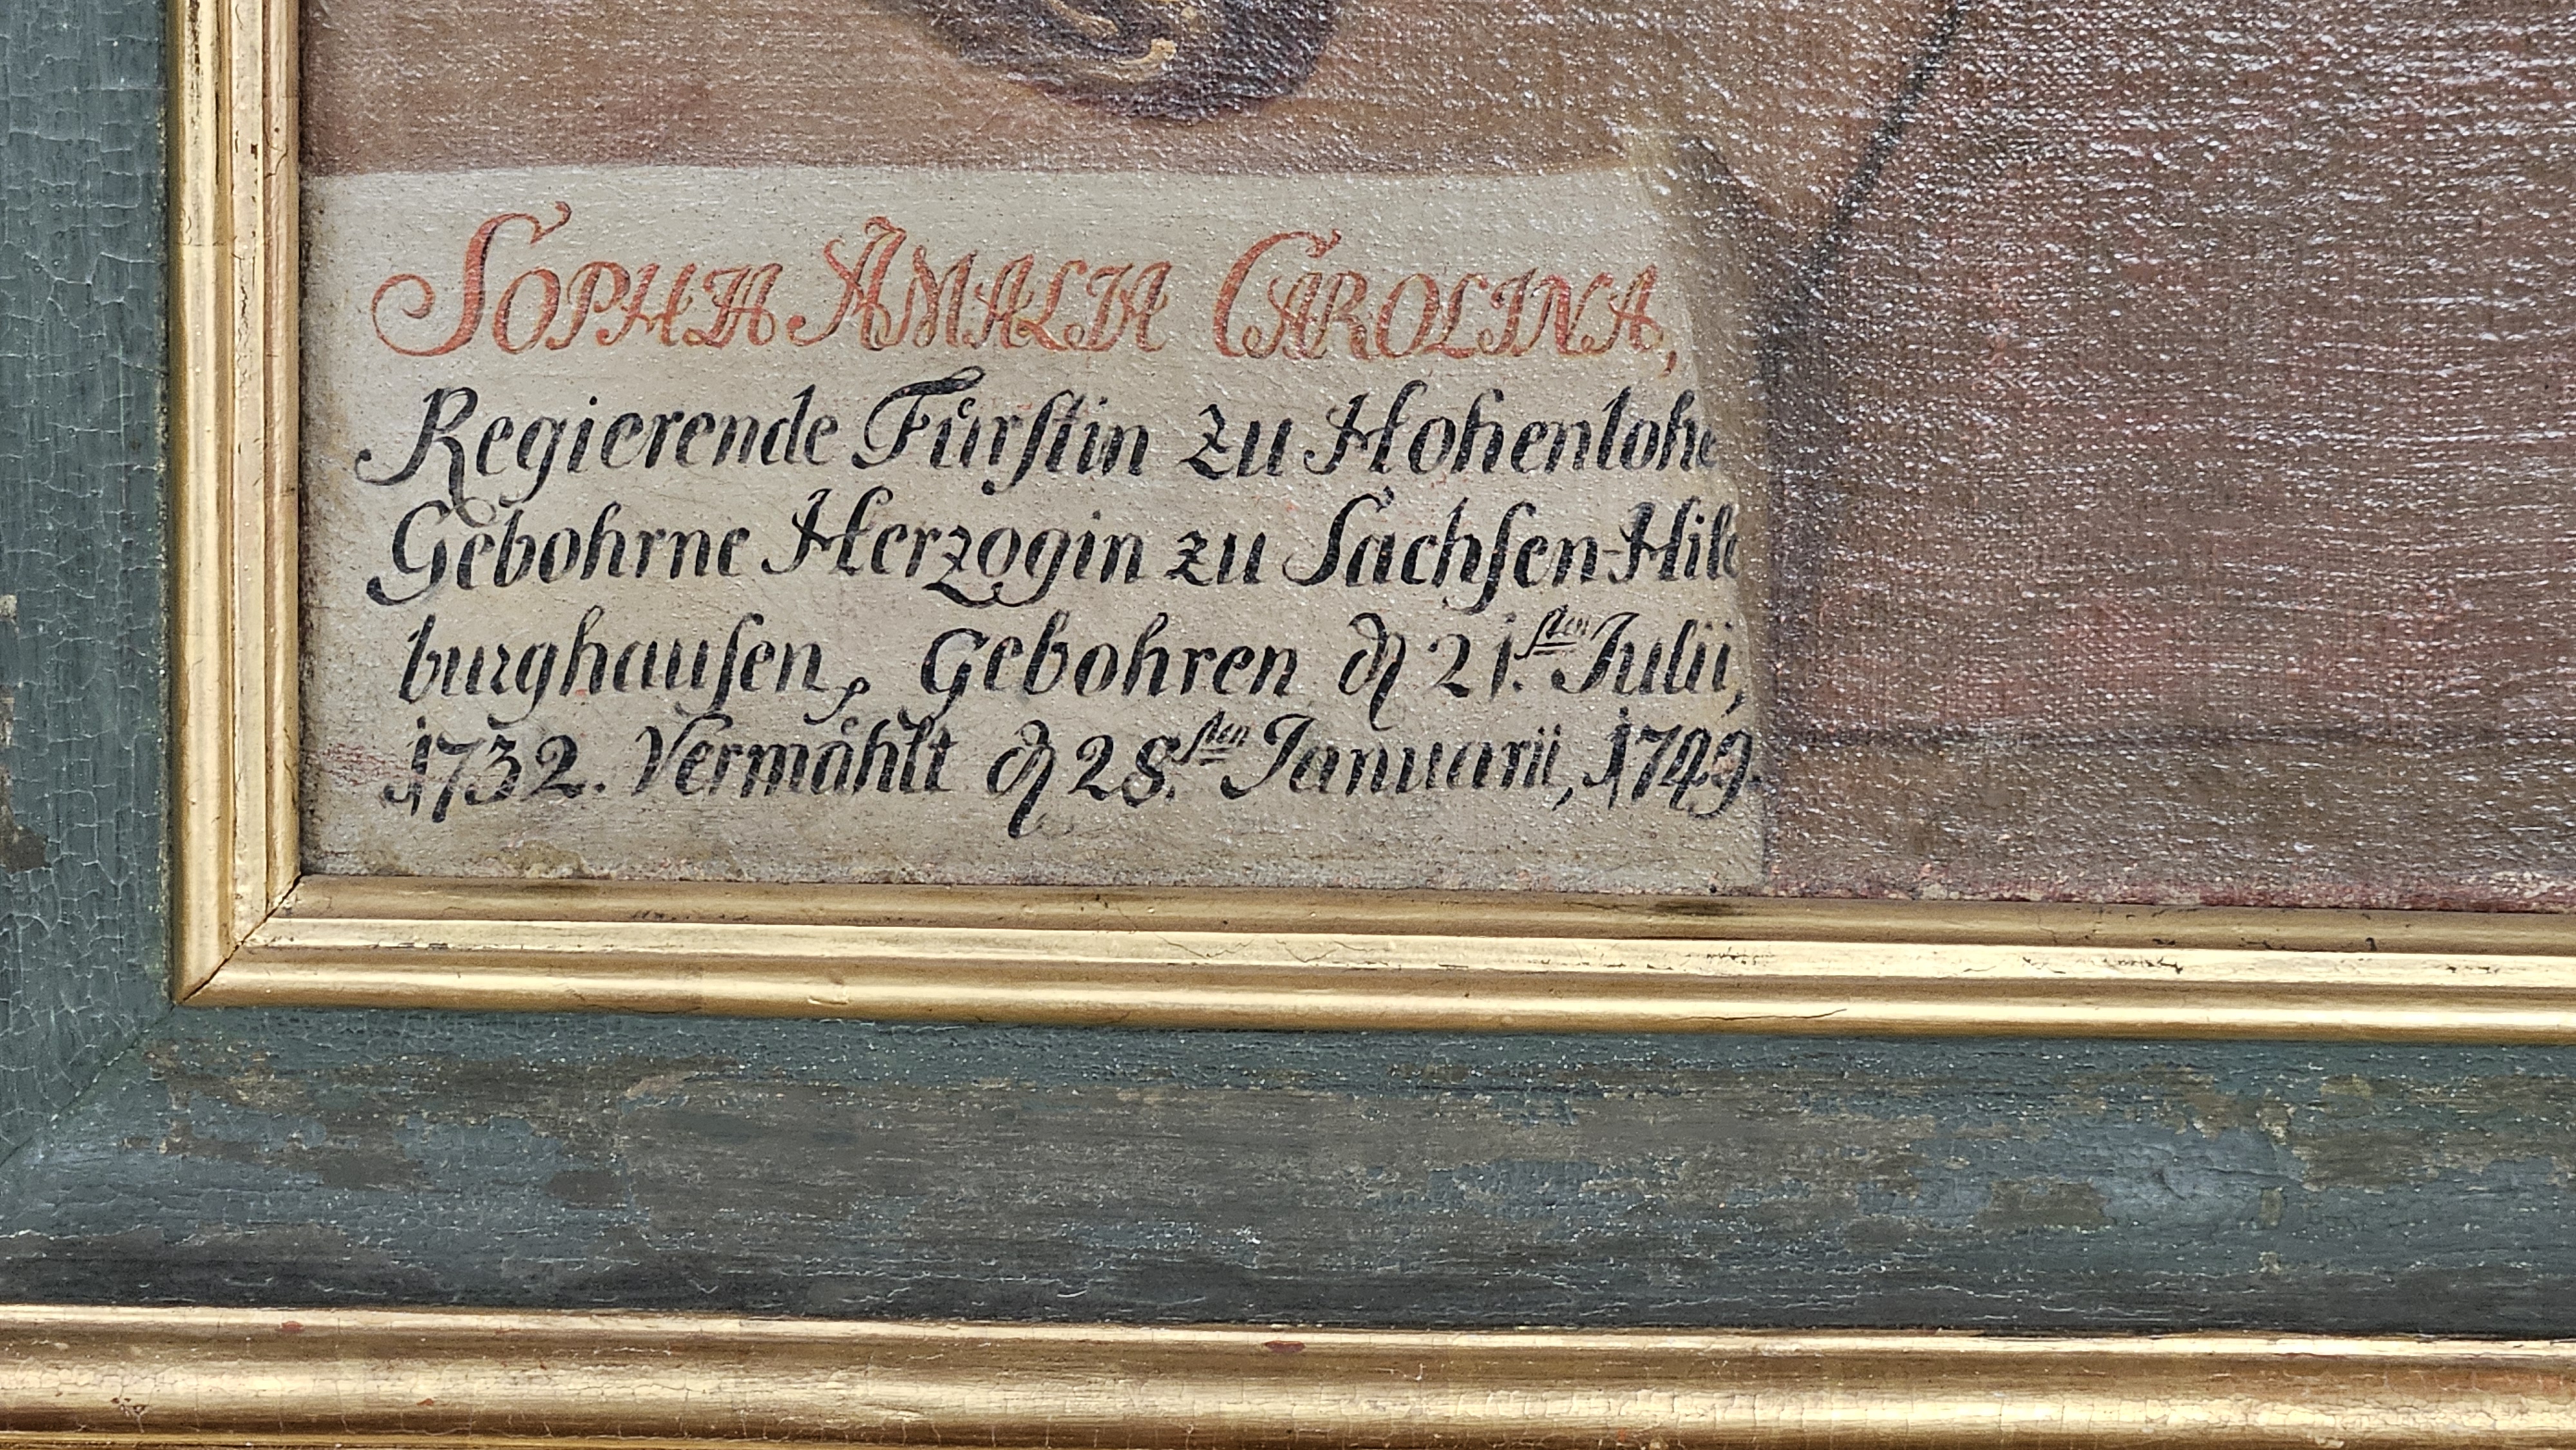 SOPHIA AMALIA CAROLINA,
Regierende Fürstin zu Hohenlohe
Gebohrne Herzogin zu Sachsen-Hild
burghausen, Gebohren d 21.sten Julii,
1732. Vermählt d 28.sten Januarii, 1749.